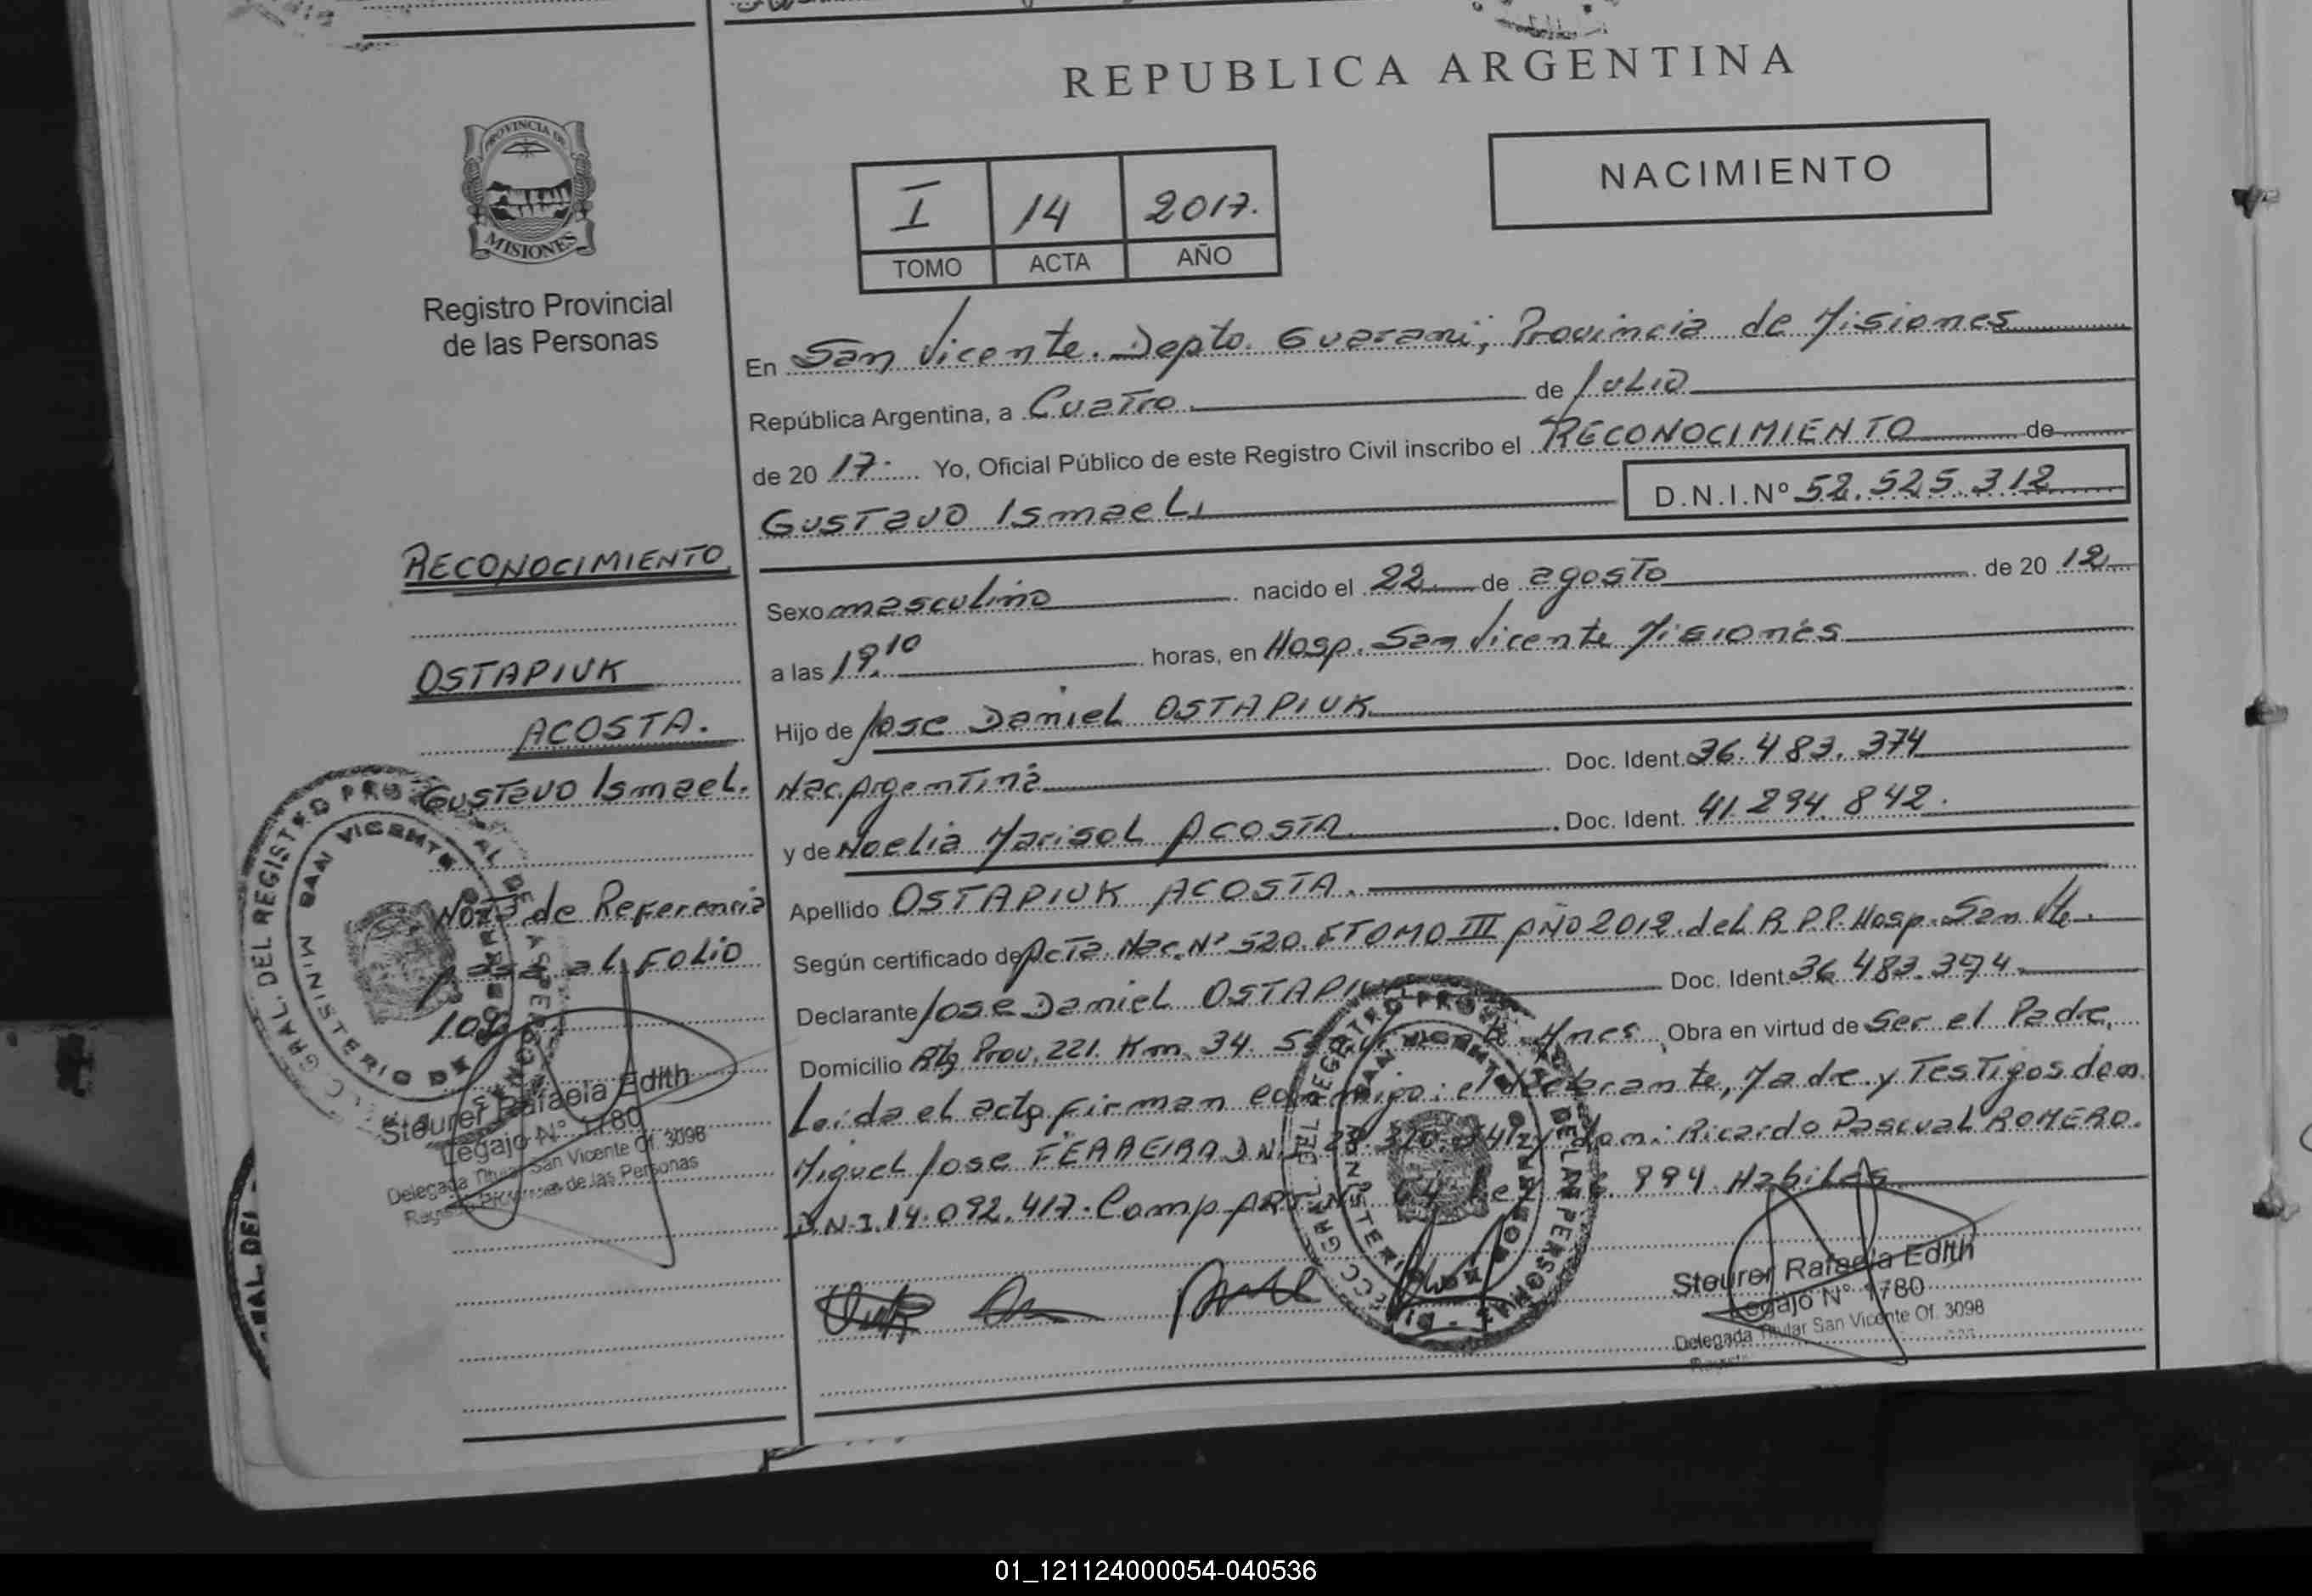 REPUBLICA ARGENTINA
PROVINCIA DE
MISIONES
Registro Provincial
de las Personas
I 14 2017.
TOMO ACTA AÑO
NACIMIENTO
En San Vicente. Depto. Guarani, Provincia de Misiones
República Argentina, a Cuatro. de Julio
de 20 17. Yo, Oficial Público de este Registro Civil inscribo el RECONOCIMIENTO de
D.N.I.Nº 52.525.312
Gustavo Ismael.
Sexo masculino nacido el 22. de agosto de 20 12.
a las 19.10 horas, en Hosp. San Vicente Misiones
Hijo de Jose Daniel OSTAPIUK
Nac. Argentina Doc. Ident. 36.483.374
y de Noelia Marisol ACOSTA Doc. Ident. 41.294.842.
Apellido OSTAPIUK ACOSTA.
Según certificado de Acta. Nac. Nº 520. TOMO III AÑO 2012. del R.P.P. Hosp. San Vte.
Declarante Jose Daniel OSTAPIUK Doc. Ident. 36.483.374
Domicilio Rta Prov. 221. Km. 34. Mnes. Obra en virtud de ser el Padre.
Leida el acta firman conmigo: el declarante, Madre y Testigos don
Miguel Jose FERREIRA D.N.I. 28. y don: Ricardo Pascual ROMERO.
D.N.I. 14.092.417. Comp. ART. 994. Habiles
RECONOCIMIENTO
OSTAPIUK
ACOSTA.
Gustavo Ismael.
Nota de Referencia
Pasa al FOLIO
Steurer Rafaela Edith
Legajo N° 1780
Delegada Titular San Vicente Of. 3098
de las Personas
Steurer Rafaela Edith
Legajo N° 1780
Delegada Titular San Vicente Of. 3098
01_121124000054-040536